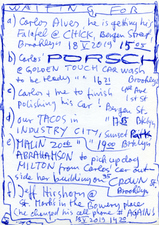 WAITING FOR
a) Carlos Alves he is getting his
Falafel @ CHICK, Bergen Street,
Brooklyn" 18 V 2019 15 05
b) Carlos' PORSCH
@ GOLDEN TOUCH CAR WASH
to be ready" " 16 21 Brooklyn
c) Carlos & me to finish 4th Ave
polishing his car! 1st St
Bergen St.
d) our TACOS in " 18 Bklyn
INDUSTRY CITY, Sunset Park
e) MALIN 20th " 19 20 Brooklyn
ABRAHAMSON to pick up dog
MILTON from Carlos' car out-
side her building on
CROWN St
f) Jeff Hisshorn @ Brooklyn
St. Marks in the Bowery place
(he changed his cell phone # AGAIN!)
18 5 2019 19 28